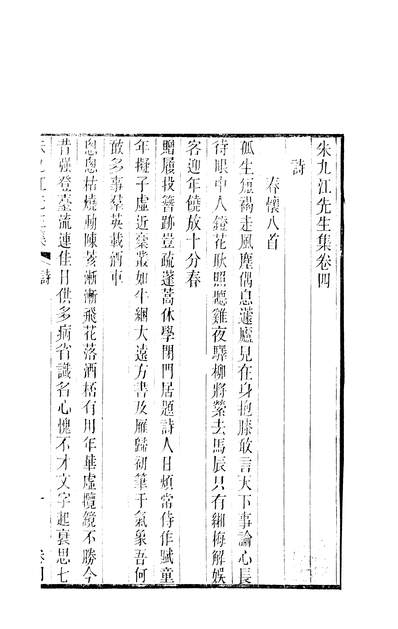 朱九江先生集卷四
詩
春懷八首
孤生短褐走風塵偶息蘧廬見在身抱膝敢言天下事論心長
待眼中人鐙花耿照聽雞夜驛柳將縈去馬辰只有緗梅解娛
客迎年饒放十分春
贈履投簪跡豈疏蓬蒿休學閉門居題詩人日煩常侍作賦童
年擬子虛近稾叢如牛綑大遠方書及雁歸初筆干氣象吾何
敢多事羣英載酒車
悤悤桔橈動陳荄漸漸飛花落酒桮有用年華虛攬鏡不勝今
昔强登臺流連佳日供多病省識名心愧不才文字起衰思七
朱九江先生集 詩 一 卷四